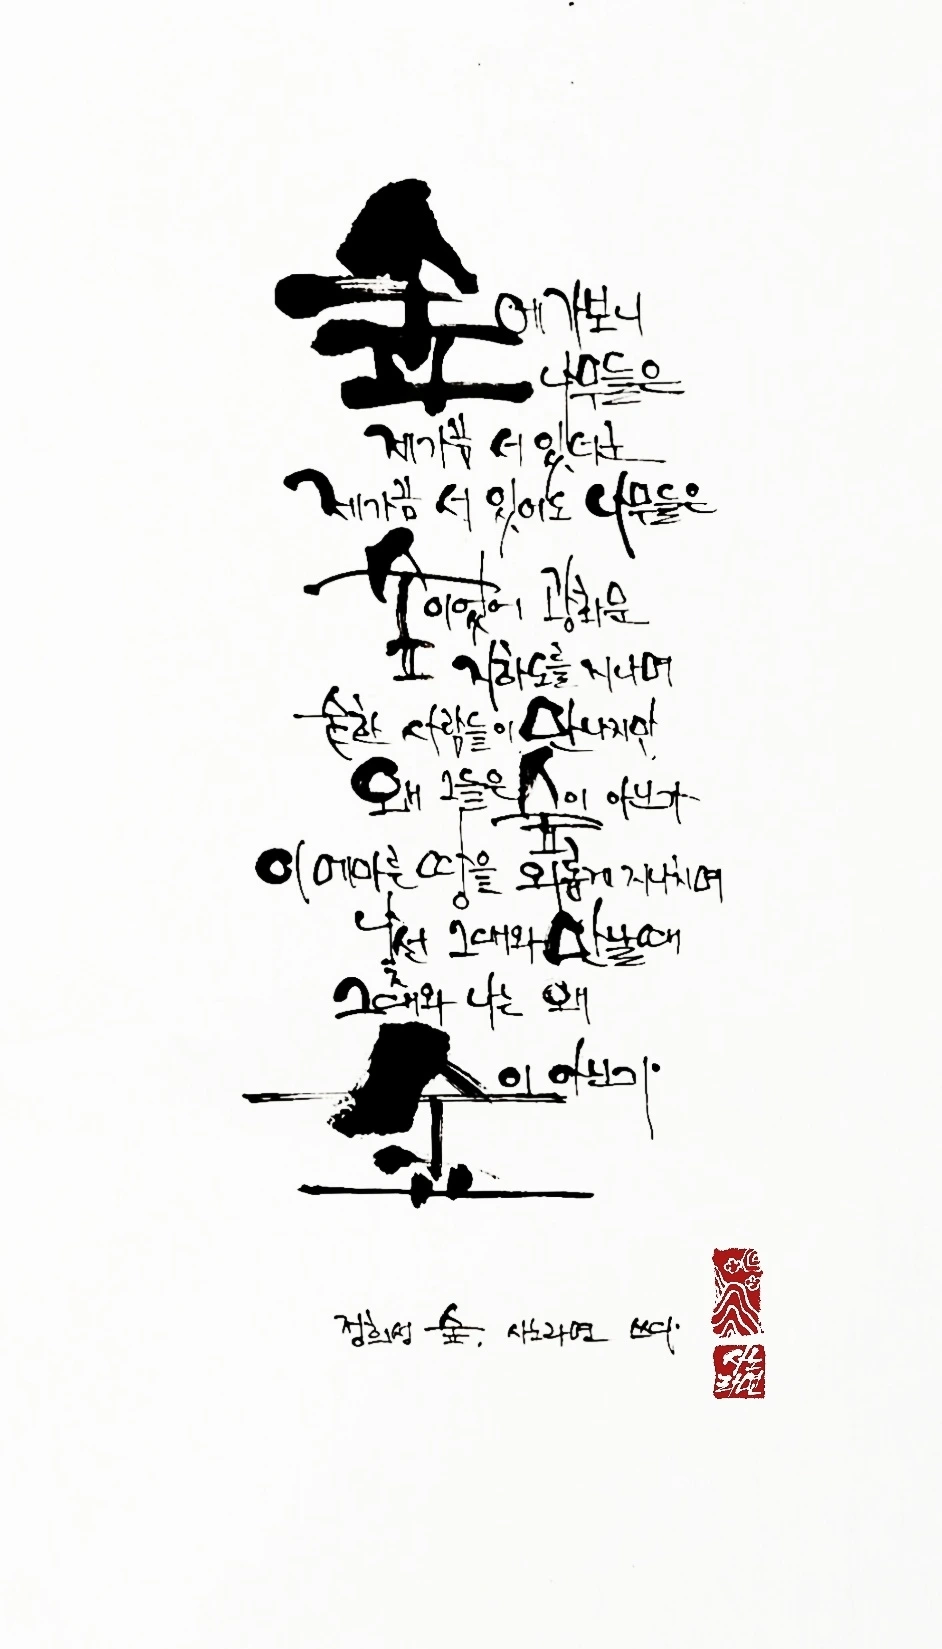 숲에 가보니
나무들은
제가끔 서 있더군
제가끔 서 있어도 나무들은
숲이었어 광화문
지하도를 지나며
숱한 사람들이 만나지만
왜 그들은 숲이 아닌가
이 메마른 땅을 외롭게 지나치며
낯선 그대와 만날 때
그대와 나는 왜
숲이 아닌가
정희성 숲, 산노라면 쓰다.